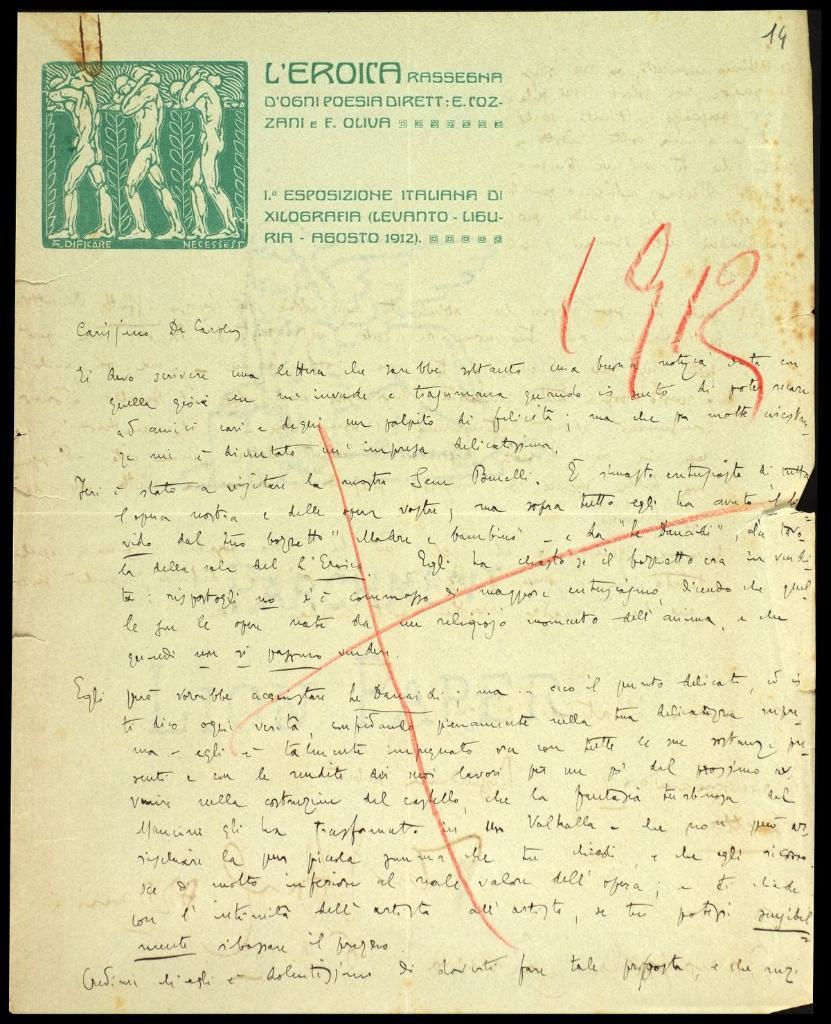 14
L'EROICA RASSEGNA
D'OGNI POESIA DIRETT: E. COZ-
ZANI E F. OLIVA
I.ª ESPOSIZIONE ITALIANA DI
XILOGRAFIA (LEVANTO - LIGU-
RIA - AGOSTO 1912).
ÆDIFICARE NECESSE EST
Carissimo De Carolis,
Ti devo scrivere una lettera che sarebbe soltanto una buona notizia data con
quella gioia che mi invade e trasumana quando io sento di poter recare
ad amici cari e degni un palpito di felicità; ma che per molte circostan-
ze mi è diventata un' impresa delicatissima.
Ieri è stato a visitare la mostra Sem Benelli. È rimasto entusiasta di tutta
l'opera nostra e delle opere vostre; ma sopra tutto egli ha avuto
dal tuo bozzetto "Madre e bambino" - e da "Le Danaidi", la tavo-
la della sala del L'Eroica. Egli ha chiesto se il bozzetto era in vendi-
ta: rispostogli no si è commosso di maggiore entusiasmo, dicendo che quel-
le son le opere nate da un religioso momento dell'anima, e che
quindi non si possono vendere.
Egli però vorrebbe acquistare Le Danaidi: ma - ecco il punto delicato, ed io
ti dico ogni verità, confidando pienamente nella tua delicatezza supre-
ma - egli è talmente impegnato ora con tutte le sue sostanze pre-
senti e con le rendite dei suoi lavori per un po' del prossimo av-
venire nella costruzione del castello, che la fantasia turbinosa del
Mancini gli ha trasformato in un Valhalla - che non può ar-
rischiare la pur piccola somma che tu chiedi, e che egli ricono-
sce di molto inferiore al reale valore dell'opera; e ti chiede
con l'intimità dell'artista all'artista, se tu potessi sensibil-
mente ribassare il prezzo.
Credimi ch'egli è dolentissimo di doverti fare tale proposta, e che anzi